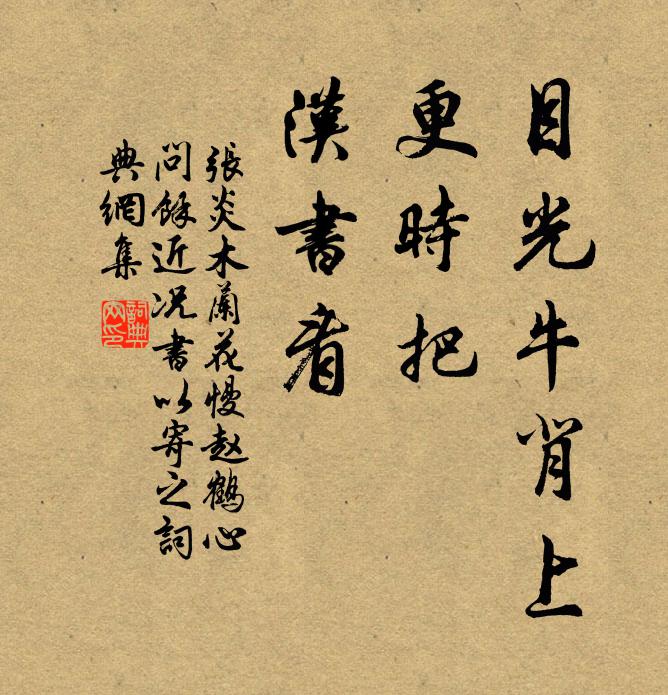 目光牛背上
更時把
漢書看
張炎木蘭花慢赵鶴心
問餘近況書以寄之詞
典網集
詞典網印